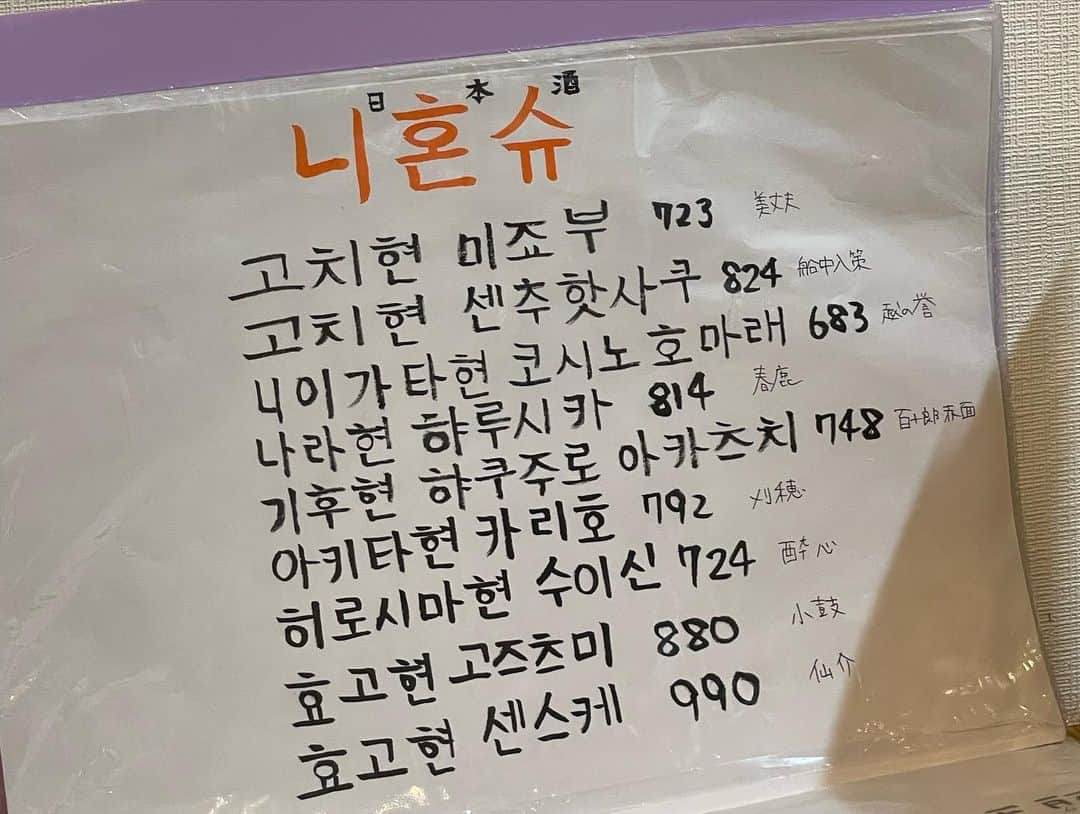 日本酒
니혼슈
고치현 미죠부 723 美丈夫
고치현 센추핫사쿠 824 船中八策
니이가타현 코시노호마래 683 越の誉
나라현 햐루시카 814 春鹿
기후현 햐쿠주로 아카츠치 748 百十郎赤面
아키타현 카리호 792 刈穂
히로시마현 수이신 724 酔心
효고현 고즈츠미 880 小鼓
효고현 센스케 990 仙介